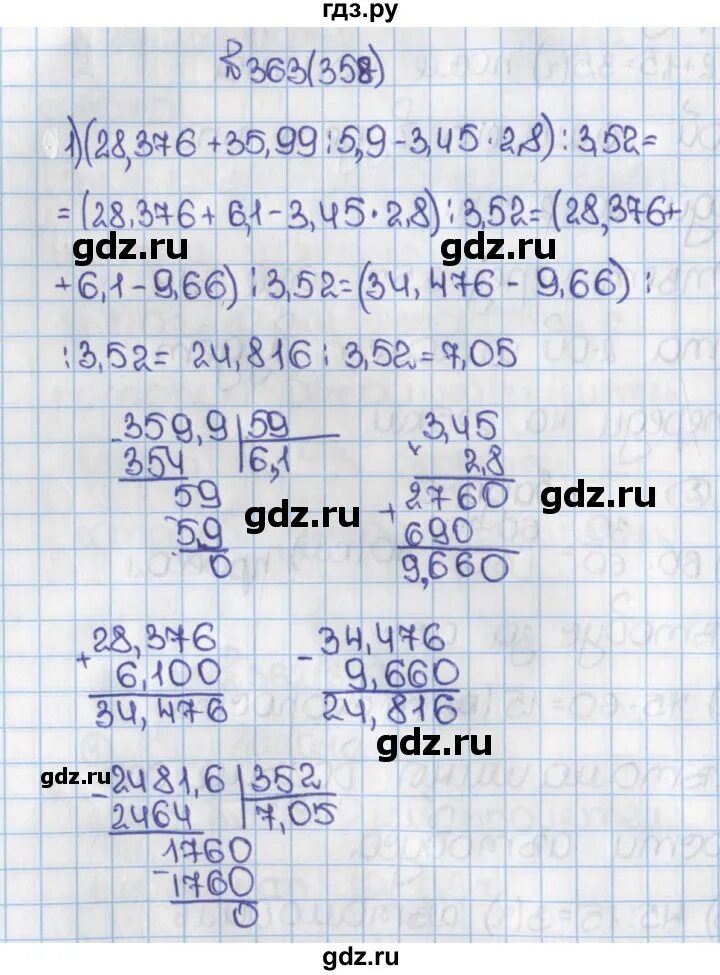 гдз.ру
№363(358)
1)(28,376+35,99:5,9-3,45·2,8):3,52=
=(28,376+6,1-3,45·2,8):3,52=(28,376+
gdz.ru gdz.ru
+6,1-9,66):3,52=(34,476-9,66):
:3,52= 24,816:3,52=7,05
-359,9 59
354 6,1
59
-5,9
0
gdz.ru
3,45
× 2,8
+2760
690
9,660
gdz.ru
+28,376
6,100
34,476
-34,476
9,660
24,816
gdz.ru
gdz.ru
-2481,6 352
2464 7,05
1760
-1760
0
gdz.ru